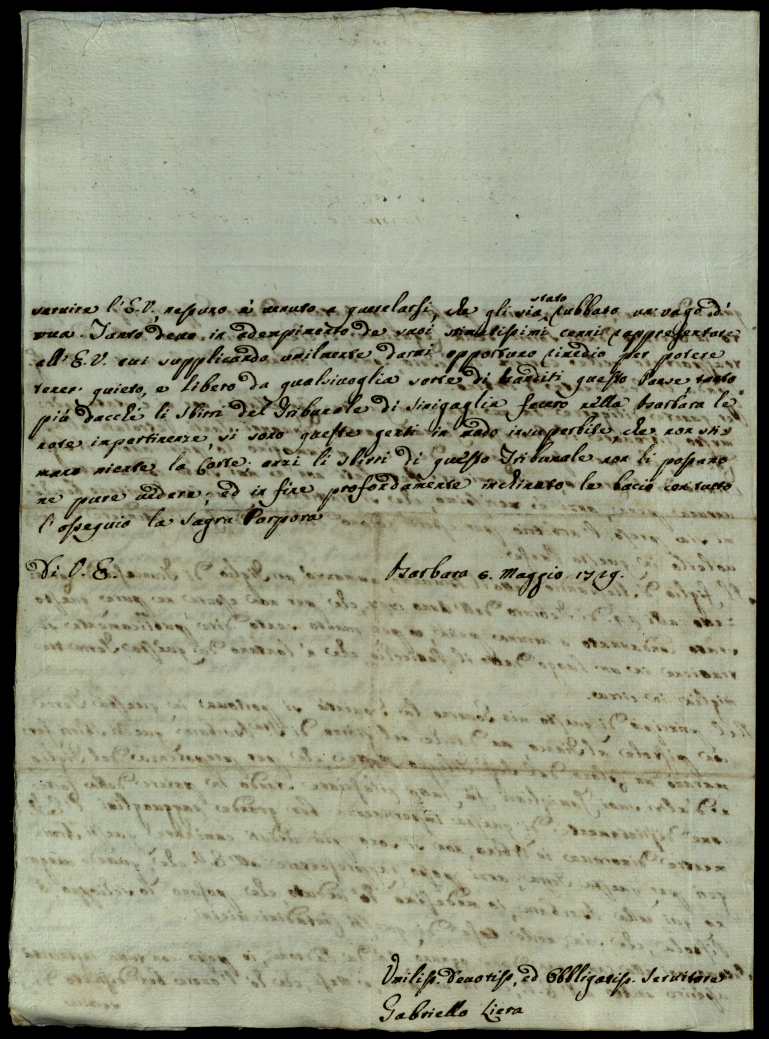 servire l'E.V., nessuno è venuto a querelarsi, che gli sia stato rubbato un vago d'
uva. Tanto devo in adempimento de suoi stimatissimi cenni rappresentare
all'E.V. cui supplicando umilmente darmi opportuno rimedio per potere
tener quieto, e libero da qualsivoglia sorte di banditi questo Paese, tanto
più dacchè li sbirri del Tribunale di Sinigaglia fecero nella Barbara le
note impertinenze, si sono queste genti in modo insuperbite, che non sti-
mano niente la Corte; anzi li sbirri di questo Tribunale non li possano
ne pure vedere; ed in fine profondamente inchinato le bacio con tutto
l'ossequio la Sagra Porpora
Di V. E. Barbara 6. Maggio 1729.
Umiliss. Devotiss, ed Obbligatiss. Servitore
Gabriello Liera